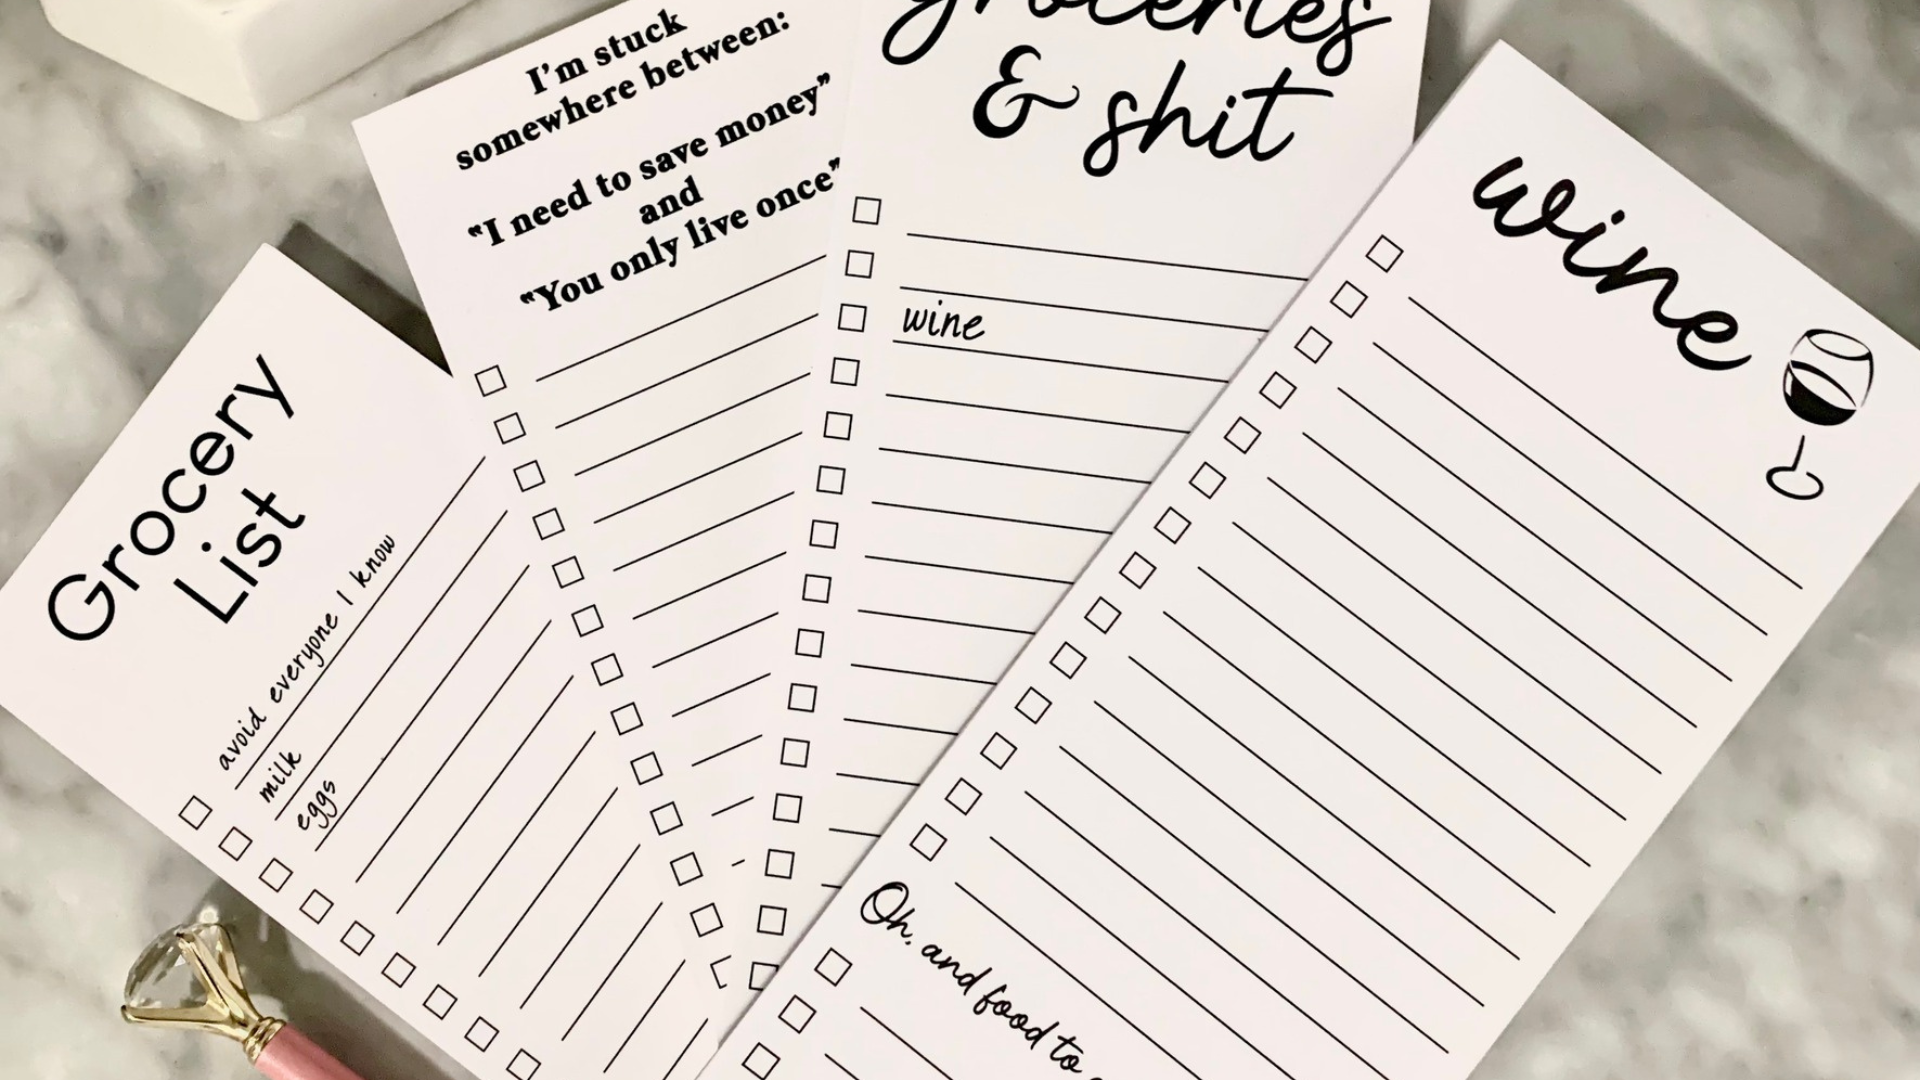 Grocery
List
avoid everyone I know
milk
eggs
I'm stuck
somewhere between:
“I need to save money”
and
“You only live once”
groceries
& shit
wine
wine
Oh, and food to